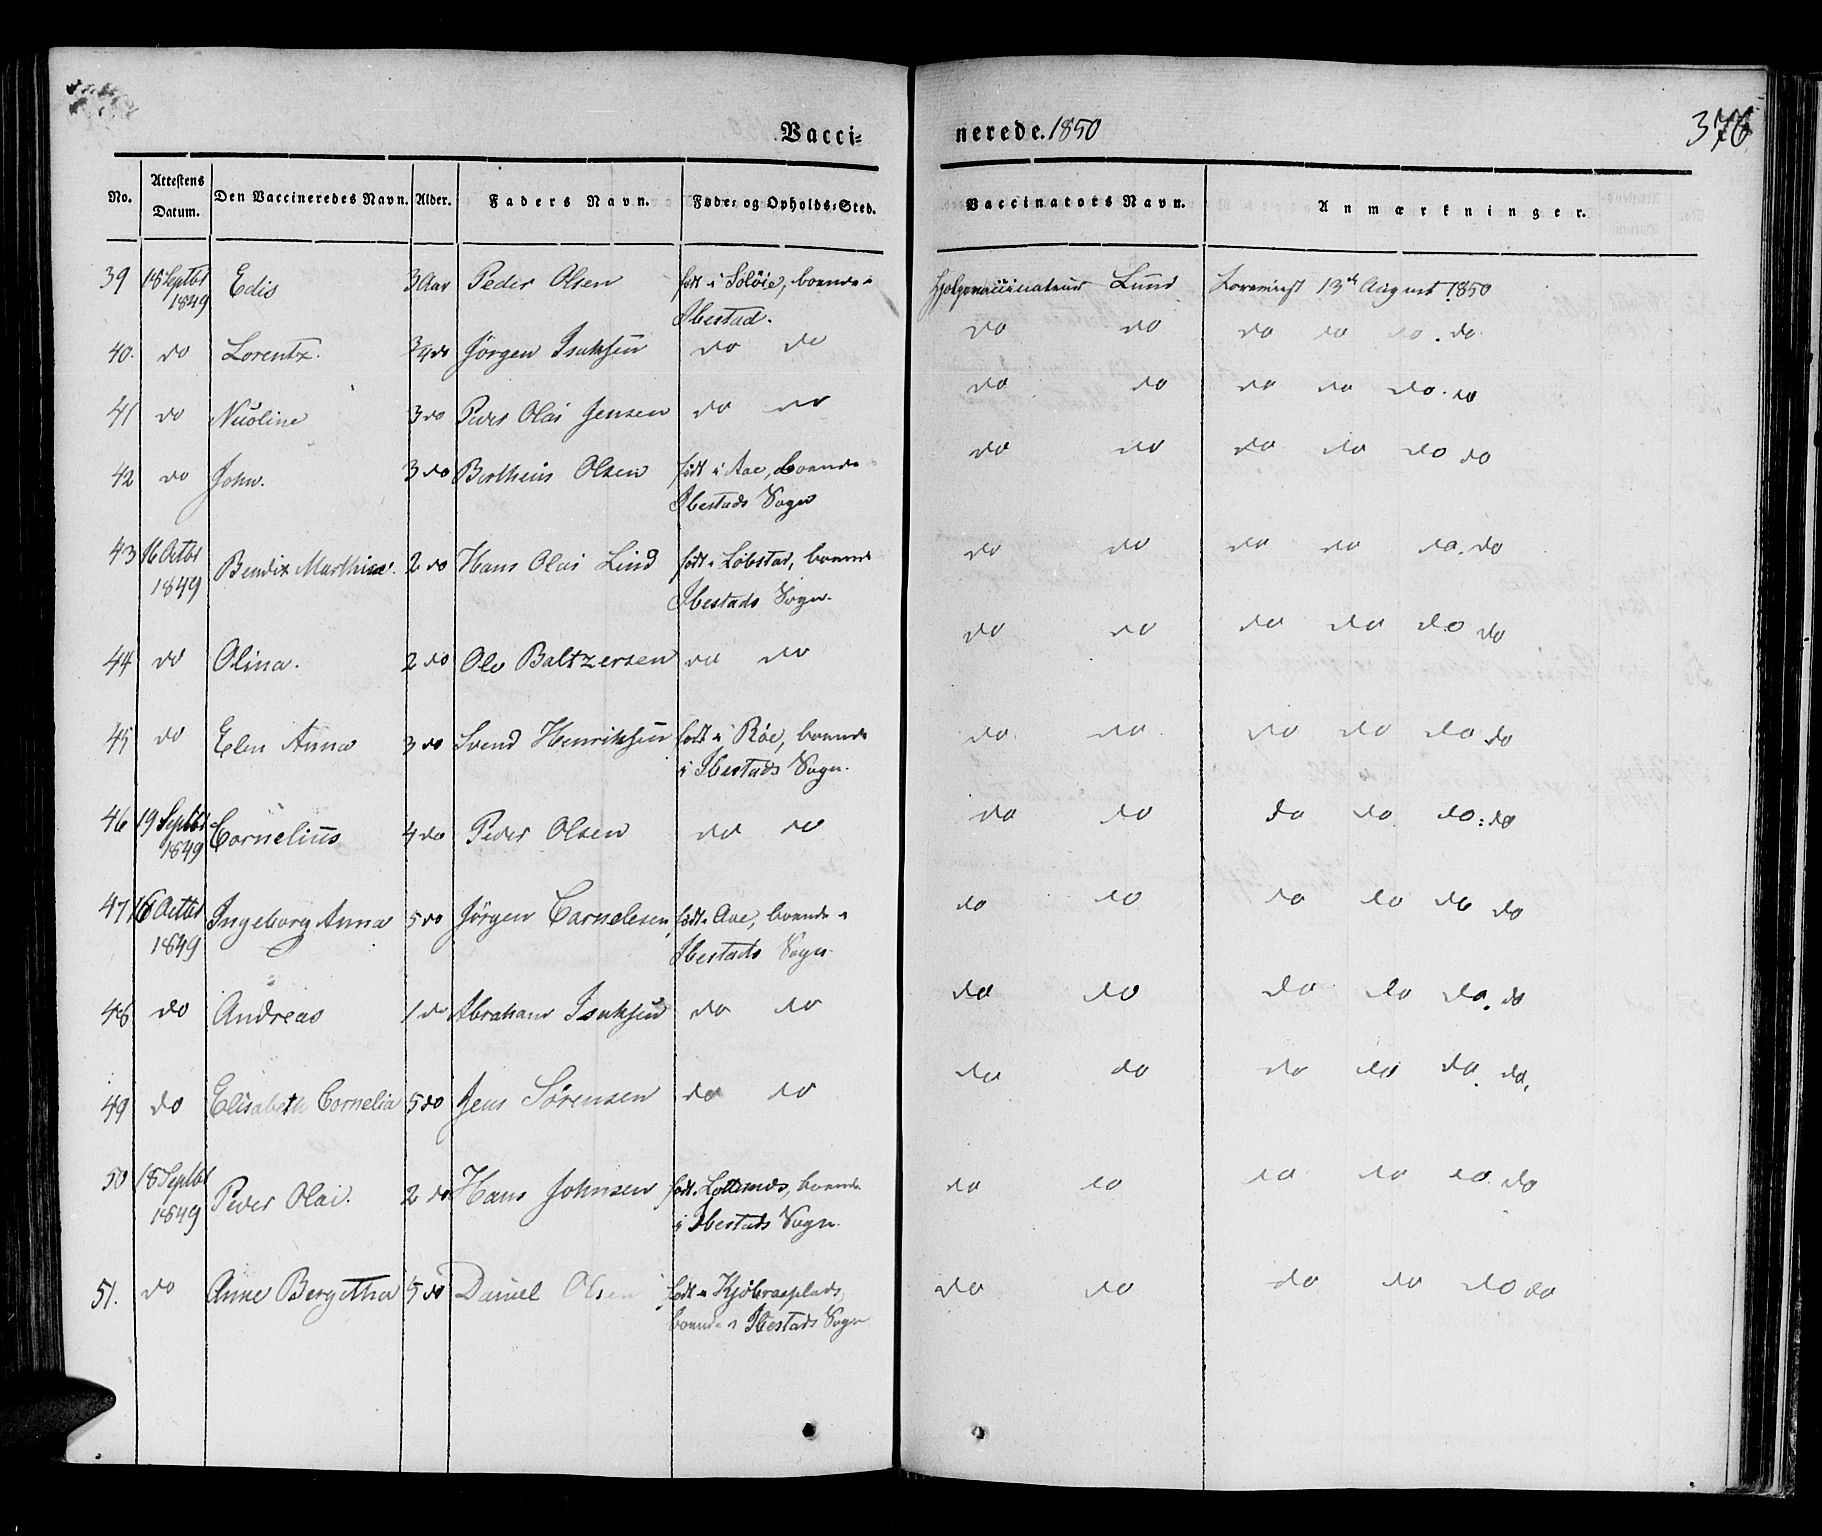 Vacci-
nerede. 1850
376
No. Attestens Datum. Den Vaccineredes Navn. Alder. Faders Navn. Føde- og Opholds-Sted. Vaccinators Navn. Anmærkninger.
39 18 Septbr Edis 3 Aar Peder Olsen født i Soløie, boende i Lund 13de August 1850
1849 Ibestad.
40. do Lorentz. 3/4 do Jørgen Isaksen do do do do do do do. do
41 do Nicoline 3 do Peder Olai Jensen do do do do do do do. do
42 do John. 3 do Bertheus Olsen født i Aae, boende
Ibestads Sogn do do do do do do
43 16 Octbr Bendix Marthias. 2 do Hans Olai Lind født i Løbstad, boende do do do do do. do
1849 Ibestads Sogn.
44 do Olina. 2 do Ole Baltzersen do do do do do do do do
45 do Elen Anna 3 do Svend Henriksen født i Røe, boende do do do do do do
i Ibestads Sogn.
46 19 Septbr Cornelius 4 do Peder Olsen do do do do do do do. do
1849
47 16 Octbr Ingeborg Anna 5 do Jørgen Cornelesen født i Aae, boende i do do do do do do
1849 Ibestads Sogn
48 do Andreas 1 do Abraham Isaksen do do do do do do do. do
49 do Elisabeth Cornelia 5 do Jens Sørensen do do do do do do do. do.
50 18 Septbr Peder Olai. 2 do Hans Johnsen født boende do do do do do. do
1849 i Ibestads Sogn.
51. do Anne Bergetha 5 do Daniel Olsen født i do do do do do do
boende i Ibestads Sogn